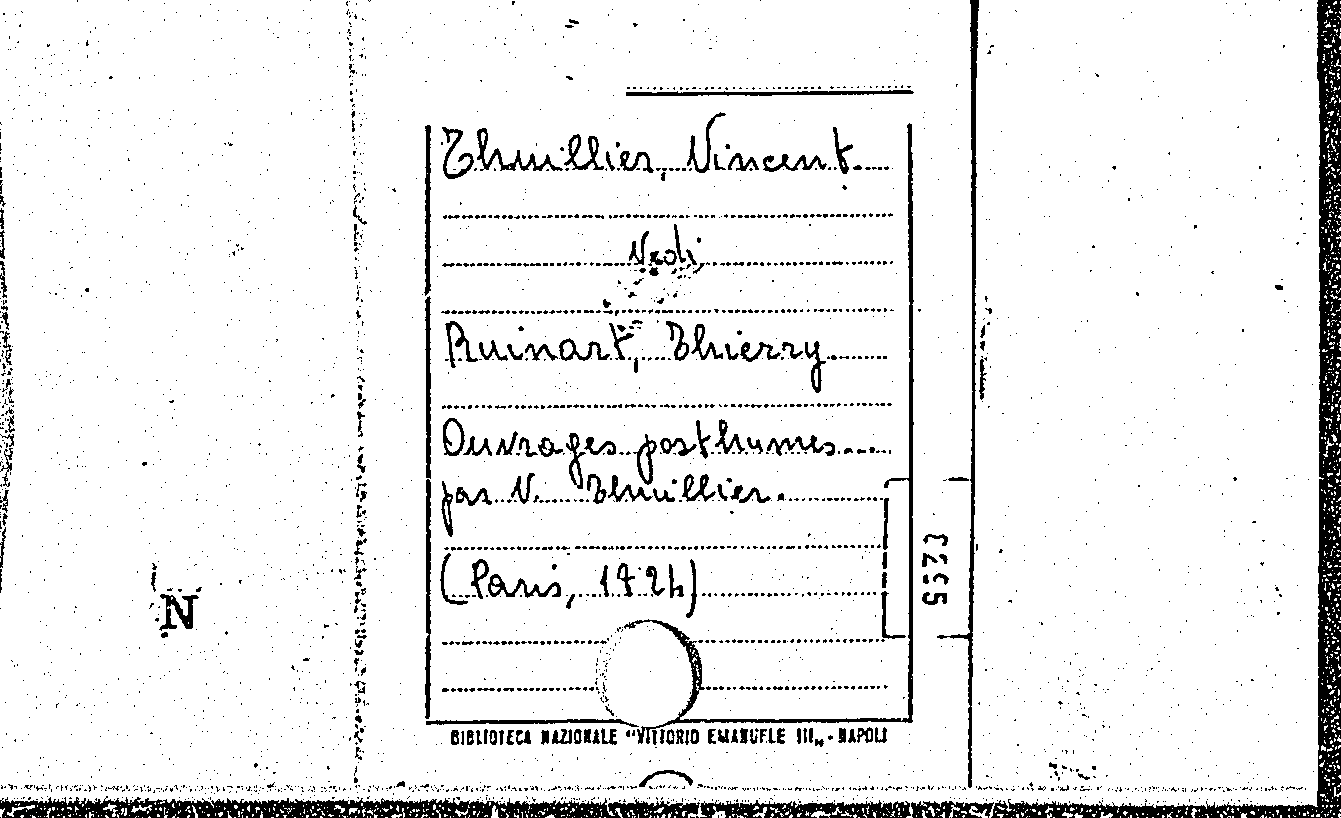 Thuillier, Vincent.
Vedi
Ruinart, Thierry
Ouvrages posthumes...
par V. Thuillier.
(Paris, 1724)
N
BIBLIOTECA NAZIONALE "VITTORIO EMANUELE III„ - NAPOLI